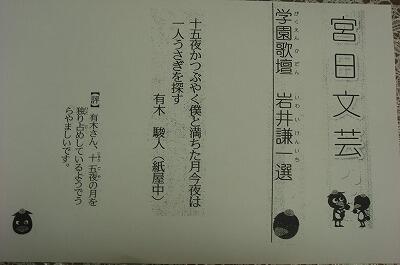 宮日文芸
がくえんかだん いわいけんいち
学園歌壇 岩井謙一選
十五夜かつぶやく僕と満ちた月今夜は
一人うさぎを探す
有木 駿人(紙屋中)
【評】有木さん、十五夜の月を
独り占めしているようでう
らやましいです。